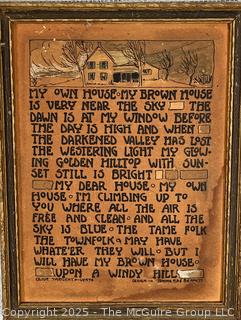 MY OWN HOUSE • MY BROWN HOUSE
IS VERY NEAR THE SKY THE
DAWN IS AT MY WINDOW BEFORE
THE DAY IS HIGH AND WHEN
THE DARKENED VALLEY HAS LOST
THE WESTERING LIGHT MY GLOW-
ING GOLDEN HILLTOP WITH SUN-
SET STILL IS BRIGHT
MY DEAR HOUSE • MY OWN
HOUSE • I'M CLIMBING UP TO
YOU WHERE ALL THE AIR IS
FREE AND CLEAN • AND ALL THE
SKY IS BLUE • THE TAME FOLK
THE TOWNFOLK • MAY HAVE
WHATE'ER THEY WILL • BUT I
WILL HAVE MY BROWN HOUSE
UPON A WINDY HILL
Copyright 2025 - The McGuire Group